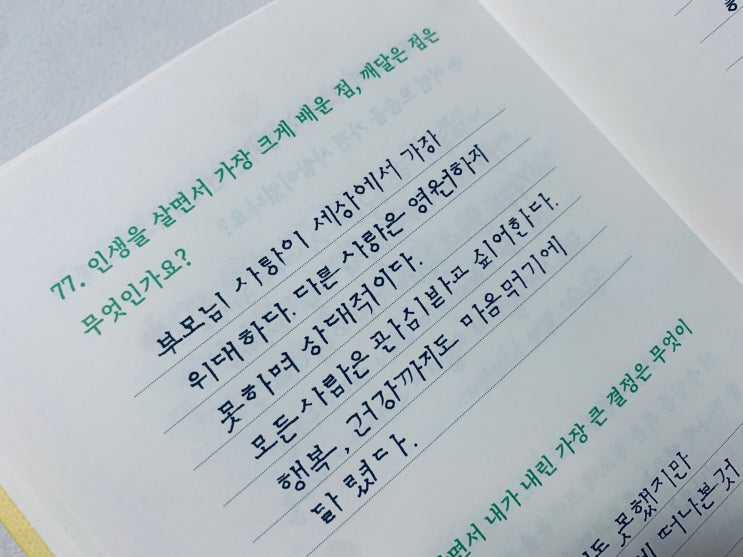 77. 인생을 살면서 가장 크게 배운 점, 깨달은 점은
무엇인가요?
부모님 사랑이 세상에서 가장
위대하다. 다른 사랑은 영원하지
못하며 상대적이다.
모든 사람은 관심받고 싶어한다.
행복, 건강까지도 마음먹기에
달렸다.
면서 내가 내린 가장 큰 결정은 무엇이
도 못했지만
떠나본것